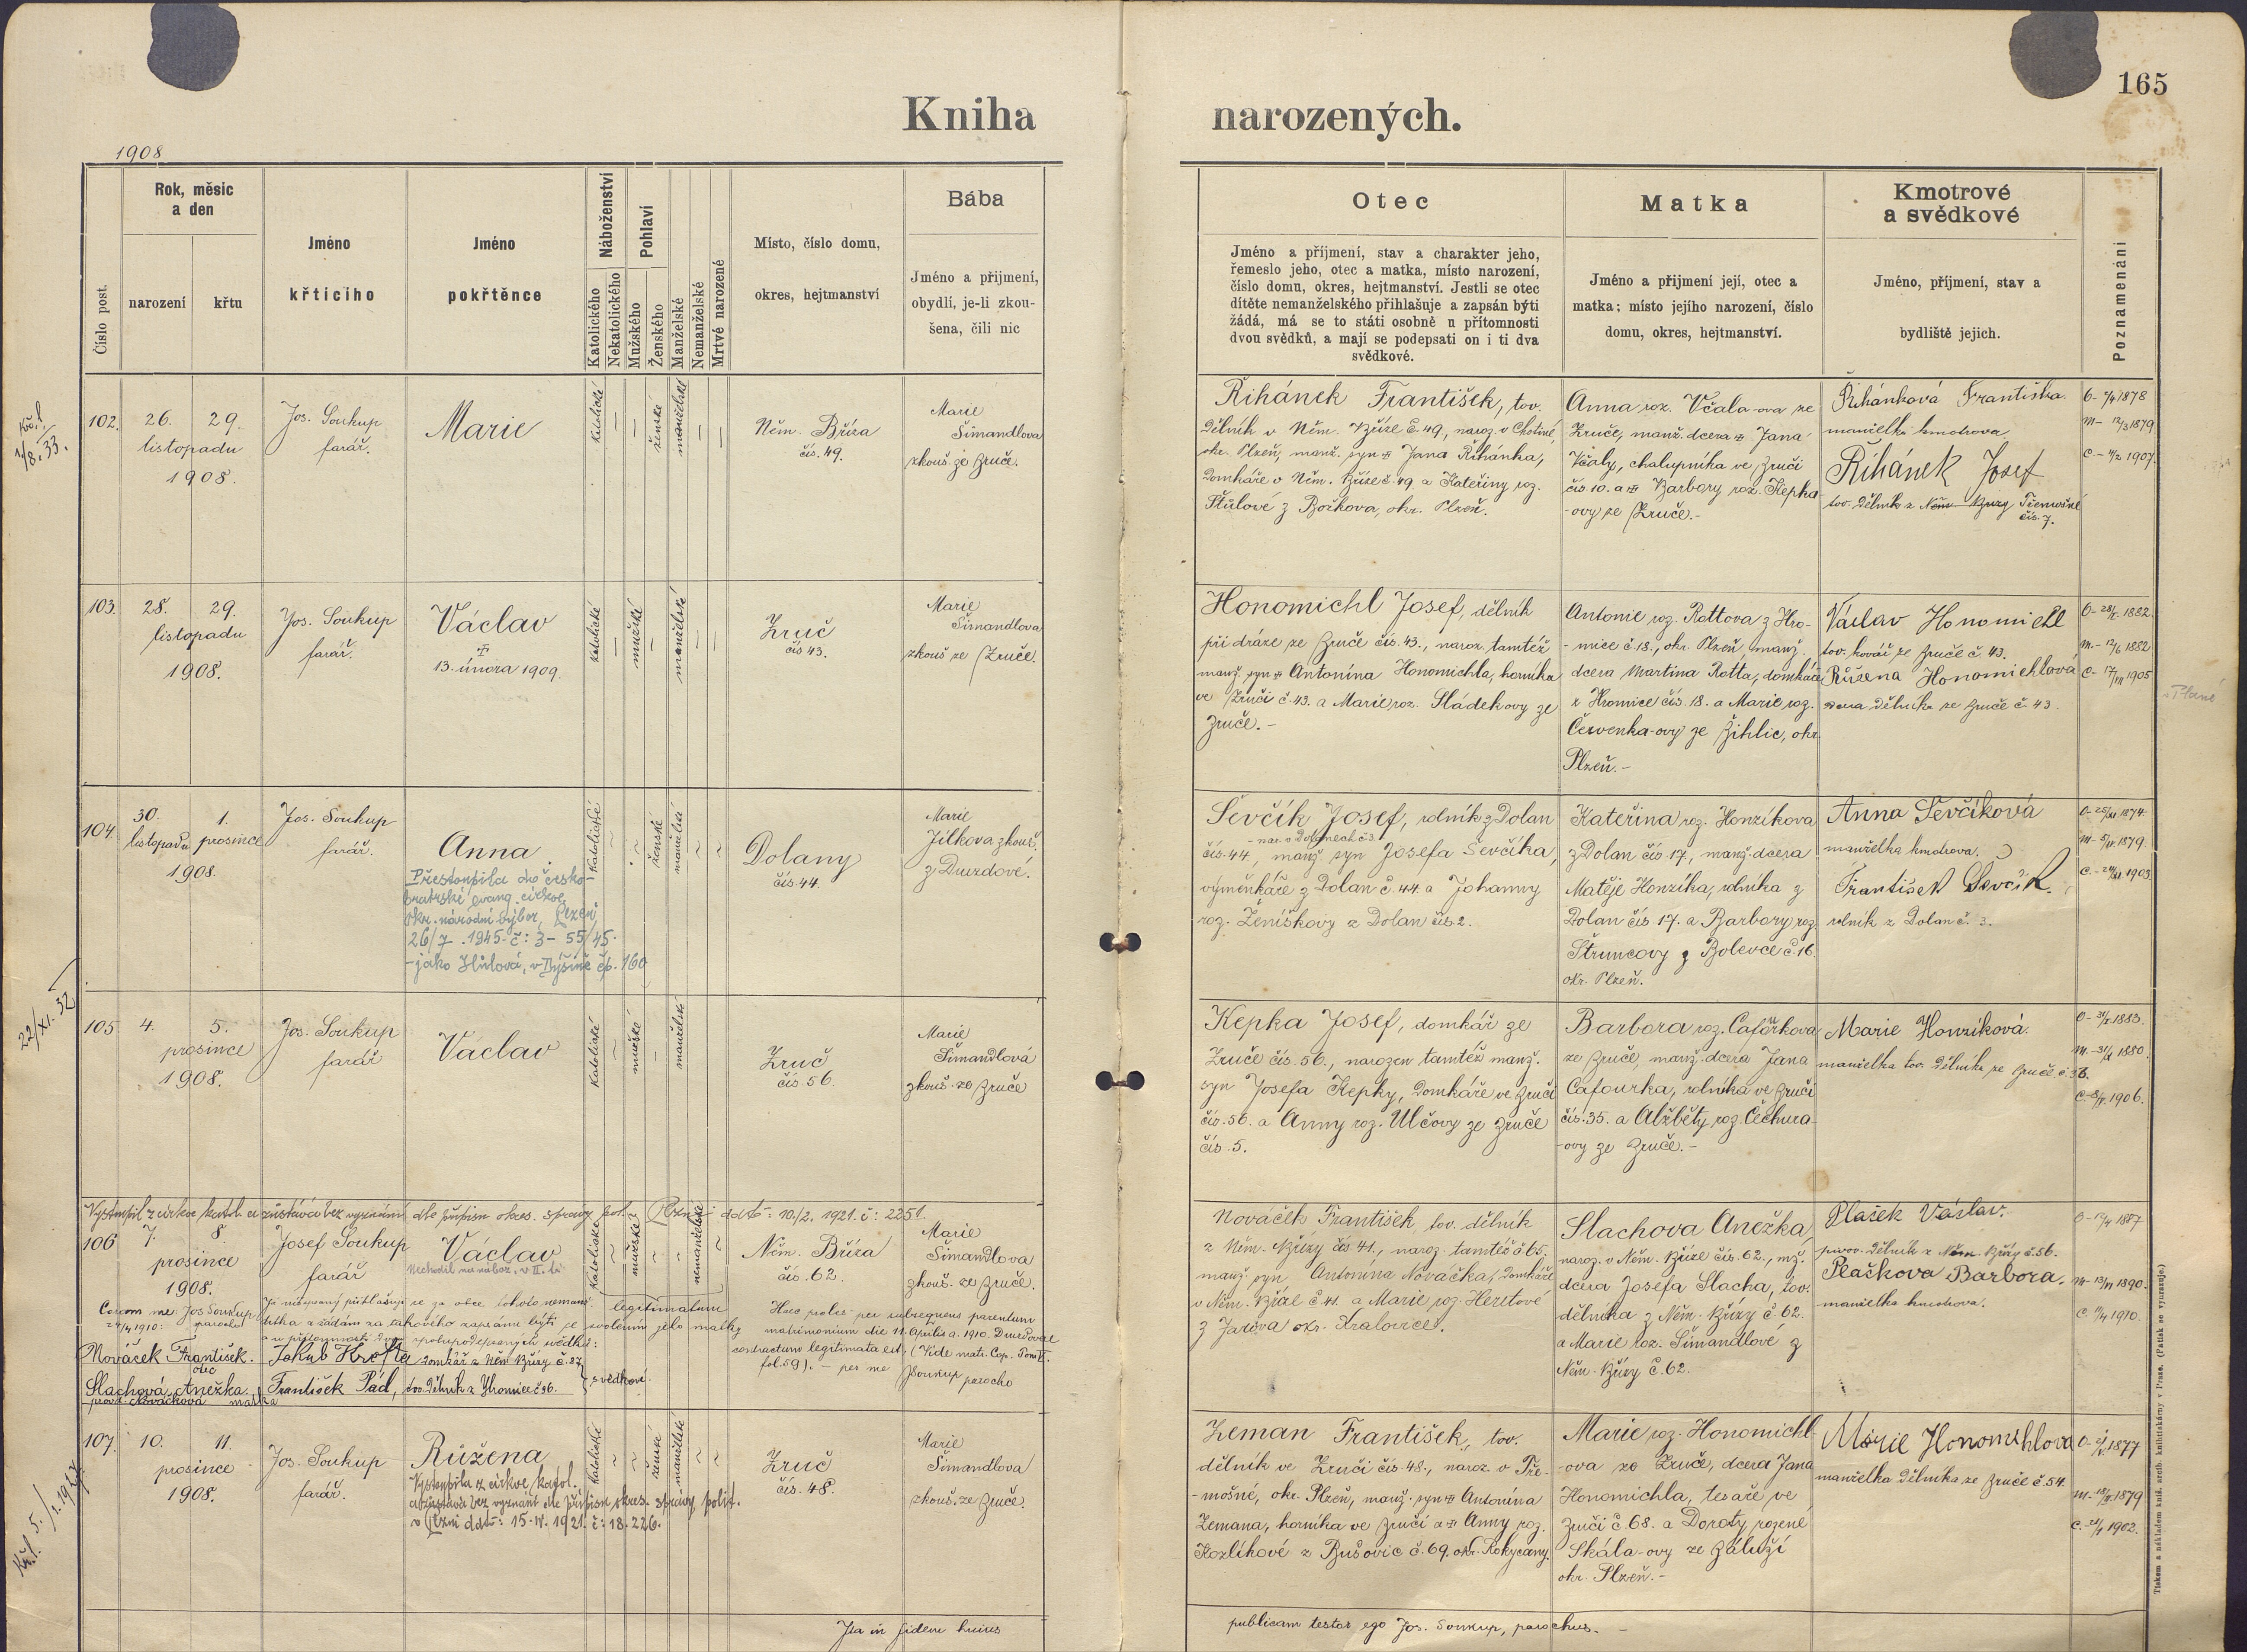 165
Kniha narozených.
1908
Číslo post.
Rok, měsíc
a den
narození
křtu
Jméno
křtícího
Jméno
pokřtěnce
Náboženství
Katolického
Nekatolického
Pohlaví
Mužského
Ženského
Manželské
Nemanželské
Mrtvě narozené
Místo, číslo domu,
okres, hejtmanství
Bába
Jméno a příjmení,
obydlí, je-li zkou-
šena, čili nic
Otec
Jméno a příjmení, stav a charakter jeho,
řemeslo jeho, otec a matka, místo narození,
číslo domu, okres, hejtmanství. Jestli se otec
dítěte nemanželského přihlašuje a zapsán býti
žádá, má se to státi osobně u přítomnosti
dvou svědků, a mají se podepsati on i ti dva
svědkové.
Matka
Jméno a přijmení její, otec a
matka; místo jejího narození, číslo
domu, okres, hejtmanství.
Kmotrové
a svědkové
Jméno, příjmení, stav a
bydliště jejich.
Poznamenání
102.
26. 29.
listopadu
1908.
Jos. Soukup
farář.
Marie
katolické
ženské
manželské
Něm. Bříza
čís. 49.
Marie
Šimandlova
zkouš. ze Zruče.
Řihánek František, tov.
dělník v Něm. Bříze č. 49, naroz. v Chotiné,
okr. Plzeň, manž. syn Jana Řihánka,
domkáře v Něm. Bříze č. 49 a Kateřiny roz.
okr. Plzeň.
Anna roz. Včala-ova ze
Zruče, manž. dcera Jana
Včaly, chalupníka ve Zruči
čís. 10. a Barbory roz. Kepka-
-ovy ze Zruče.-
Řihánková Františka.
manželka kmotrova
Řihánek Josef
tov. dělník z Něm. Břízy Třemošné
čís. 7.
103.
28. 29.
listopadu
1908.
Jos. Soukup
farář.
Václav
13. února 1909.
katolické
mužské
manželské
Zruč
čís 43.
Marie
Šimandlova
zkouš ze Zruče.
Honomichl Josef, dělník
při dráze ze Zruče čís. 43., naroz. tamtéž
manž. syn Antonína Honomichla, horníka
ve Zruči č. 43. a Marie roz. Sládekovy ze
Zruče.-
Antonie roz. Rottova z Hro-
-mice č. 18., okr. Plzeň, manž.
dcera Martina Rotta, domkáře
z Hromice čís. 18. a Marie roz.
Červenka-ovy ze Žihlic, okr.
Plzeň.-
Václav Honomichl
tov. kovář ze Zruče č. 43.
Růžena Honomichlová
dcera dělníka ze Zruče č. 43.
104.
30. 1.
listopadu prosince
1908.
Jos. Soukup
farář.
Anna
Přestoupila do česko-
bratrské evang. církve
Okr. národní výbor, Plzeň
26/7. 1945. č: 3- 55/45.
-jako Hůlová, v Dýšině čp. 160
katolické
ženské
manželské
Dolany
čís. 44.
Marie
Jílkova zkouš.
z Druzdové.
Ševčík Josef, rolník z Dolan
- nar. v Dolanech č 3
čís. 44, manž syn Josefa Ševčíka,
výměnkáře z Dolan č. 44. a Johanny
roz. Ženíškovy z Dolan čís 2.
Kateřina roz. Honzíkova
z Dolan čís 17., manž. dcera
Matěje Honzíka, rolníka z
Dolan čís 17. a Barbory roz.
Štruncovy z Bolevce č. 16.
okr. Plzeň.
Anna Ševčíková
manželka kmotrova.
František Ševčík.
rolník z Dolan č. 3.
22/XI. 32
105.
4. 5.
prosince
1908.
Jos. Soukup
farář
Václav
katolické
mužské
manželské
Zruč
čís 56.
Marie
Šimandlová
zkouš. ze Zruče
Kepka Josef, domkář ze
Zruče čís. 56., narozen tamtéž manž.
syn Josefa Kepky, domkáře ve Zruči
čís. 56. a Anny roz. Ulčovy ze Zruče
čís. 5.
Barbora roz. Cafourkova
ze Zruče, manž. dcera Jana
Cafourka, rolníka ve Zruči
čís. 35. a Alžběty roz. Čechura-
-ovy ze Zruče.-
Marie Honzíková.
manželka tov. dělníka ze Zruče č. 36.
Vystoupil z církve katol. a zůstává bez vyznání dle přípisu okres. správy pol. Plzni ddto: 10./2. 1921. č: 2251.
106
7. 8.
prosince
1908.
Josef Soukup
farář
Václav
katolické
mužské
nemanželské
Něm. Bříza
čís. 62.
Marie
Šimandlova
zkouš. ze Zruče.
Coram me: Jos. Soukup
24/4 1910: parochus
Já nížepsaný přihlašuji se za otce tohoto nemanž.
dítka a žádám za takového zapsánu býti se svolením jeho matky
a u přítomnosti dvou spolupodepsaných svědků:
Nováček František.
otec
Slachová Anežka
prov. Nováčková matka
Jakub Krofta domkář z Něm Břízy č. 27
František Pád, tov. dělník z Hromice č 36.
svědkové.
legitimatum
Haec proles per subsequens parentum
matrimonium die 11. Aprilis a. 1910. Druzdovae
contractum legitimata est, (Vide matr. Cop. Tom V.
fol. 59). - per me JSoukup parocho
Nováček František tov. dělník
z Něm. Břízy čís 41., naroz. tamtéž č 65.
manž syn Antonína Nováčka, domkáře
v Něm. Bříze č 41. a Marie roz. Heretové
z Jarova okr. Kralovice.
Slachova Anežka,
naroz. v Něm. Bříze čís. 62., mž.
dcera Josefa Slacha, tov.
dělníka z Něm. Břízy č. 62.
a Marie roz. Šimandlové z
Něm. Břízy č. 62.
Plašek Václav.
dělník z Něm. Břízy č. 56.
Plaškova Barbora.
manželka kmotrova.
107.
10. 11.
prosince
1908.
Jos. Soukup
farář.
Růžena
Vystoupila z církve katol.
a zůstává bez vyznání dle přípisu okres. správy polit.
v Plzni ddto: 15. IV. 1921. č: 18. 226.
katolické
ženské
manželské
Zruč
čís. 48.
Marie
Šimandlova
zkouš. ze Zruče.
Zeman František, tov.
dělník ve Zruči čís. 48., naroz. v Tře-
-mošné, okr. Plzeň, manž. syn Antonína
Zemana, horníka ve Zruči a Anny roz.
Kozlíkové z Bušovic č. 69. okr. Rokycany.
Marie roz. Honomichl-
-ova ze Zruče, dcera Jana
Honomichla, tesaře ve
Zruči č. 68. a Doroty rozené
Skála-ovy ze Záluží
okr. Plzeň.-
Marie Honomichlova
manželka dělníka ze Zruče č. 54.
Ita in fidem huius publicam testor ego Jos. Soukup, parochus.-